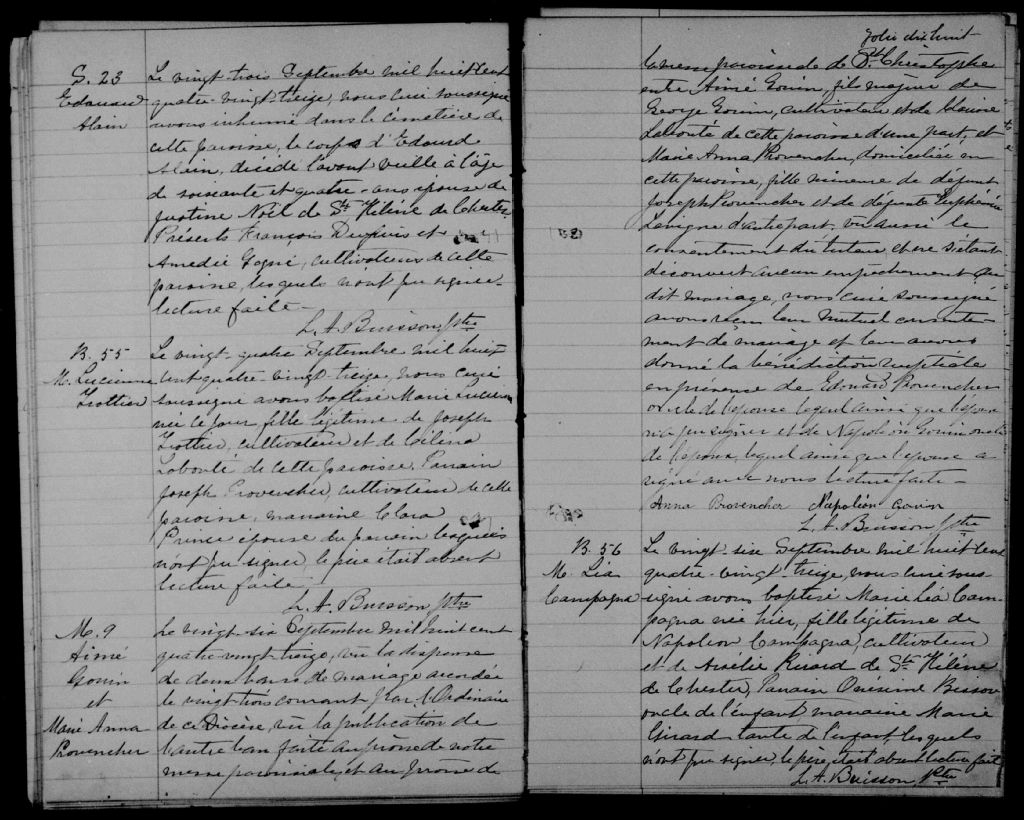 S. 23
Edouard
Alain
Le vingt trois Septembre mil huit cent
quatre-vingt-treize, nous curé soussigné
avons inhumé dans le cimetière de
cette paroisse, le corps d'Edouard
Alain, décédé l'avant veille à l'âge
de soixante et quatre ans époux de
Justine Noël de Ste Hélène de Chester
Présents François Dupuis et
Amédée Gagné, cultivateurs de cette
paroisse, lesquels n'ont pu signer
lecture faite.
L. A. Buisson Ptre
B. 55
M. Lucienne
Trottier
Le vingt-quatre Septembre mil huit
cent quatre-vingt-treize, nous curé
soussigné avons baptisé Marie Lucienne
née ce jour fille légitime de Joseph
Trottier, cultivateur et de Célina
Labonté de cette paroisse. Parrain
Joseph Provencher, cultivateur de cette
paroisse, marraine Clara
Prince épouse du parrain lesquels
n'ont pu signer, le père était absent
lecture faite.
L. A. Buisson Ptre
M. 9
Aimé
Gouin
et
Marie Anna
Provencher
Le vingt six Septembre mil huit cent
quatre vingt treize, vu la dispense
de deux bans de mariage accordée
le vingt trois courant par l'Ordinaire
de ce Diocèse, vu la publication de
l'autre ban faite au prône de notre
messe paroissiale, et au prône de
folio dix huit
la messe paroissiale de St Christophe
entre Aimé Gouin, fils majeur de
George Gouin, cultivateur et de
de cette paroisse d'une part, et
Marie Anna Provencher, domiciliée en
cette paroisse, fille mineure de défunt
Joseph Provencher et de défunte Euphémie
Lavigne d'autre part. Vu aussi le
consentement du tuteur, et ne s'étant
découvert aucun empêchement au
dit mariage, nous curé soussigné
avons reçu leur mutuel consente-
ment de mariage et leur avons
donné la bénédiction nuptiale
en présence de Edouard Provencher
oncle de l'épouse lequel ainsi que l'époux
n'a pu signer et de Napoléon Gouin oncle
de l'époux, lequel ainsi que l'épouse a
signé avec nous lecture faite.
Anna Provencher Napoléon Gouin
L. A. Buisson Ptre
B. 56
M. Léa
Campagna
Le vingt-six Septembre mil huit cent
quatre-vingt-treize, nous curé sous-
signé avons baptisé Marie Léa Cam-
pagna née hier, fille légitime de
Napoléon Campagna, cultivateur
et de Aurélie de Ste Hélène
de Chester, Parrain Onésime Bisson
oncle de l'enfant marraine Marie
Girard tante de l'enfant, lesquels
n'ont pu signer, le père était absent lecture faite
L. A. Buisson Ptre